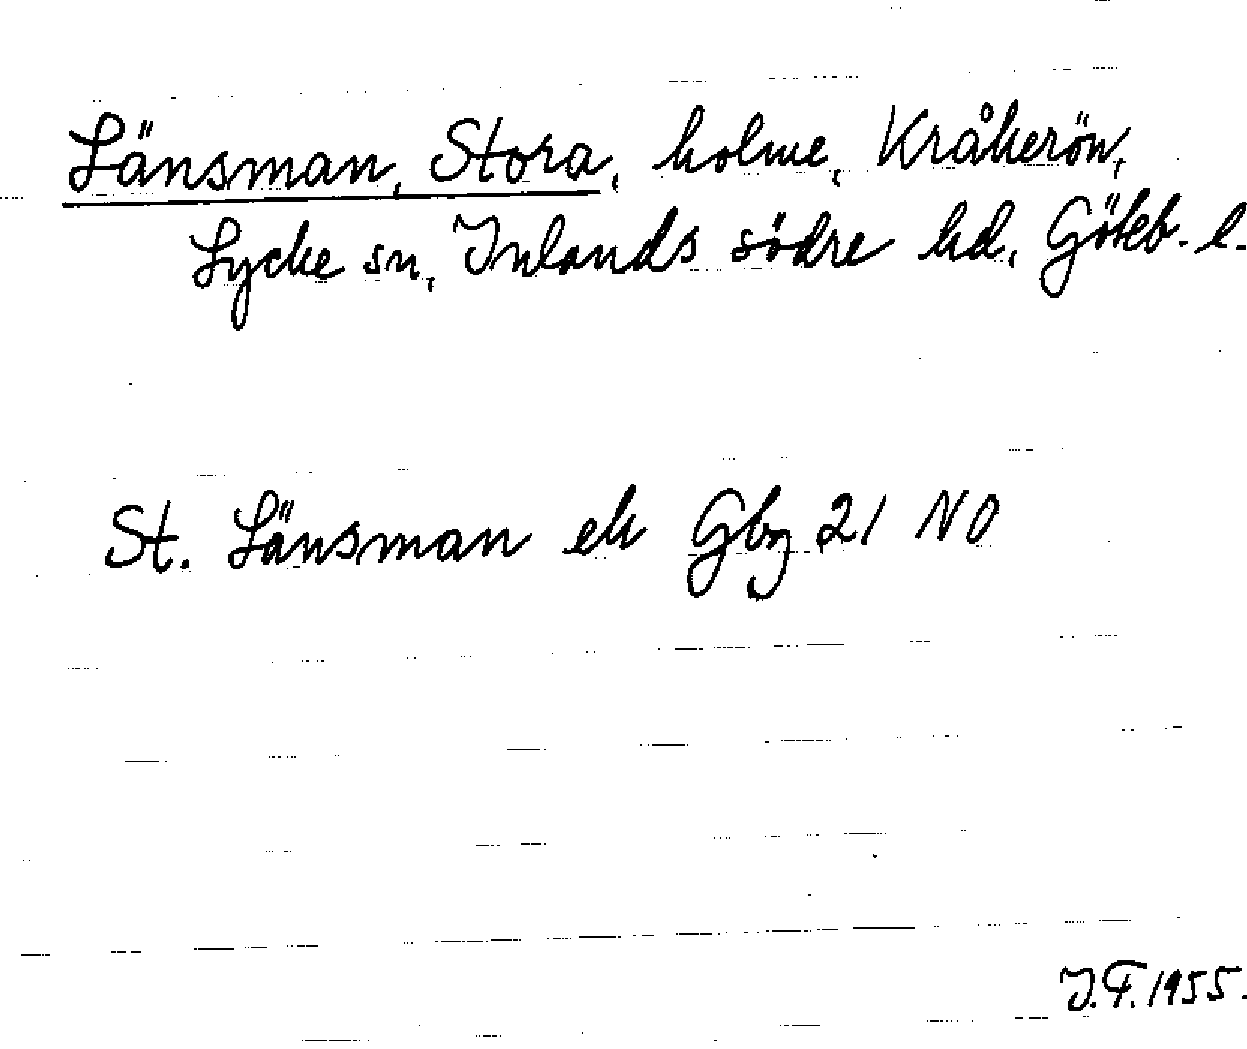 Länsman, Stora, holme, Kråkerön,
Lycke sn, Inlands södre hd, Göteb. l.
St. Länsman ek Gbg 21 NO
J.F. 1955.